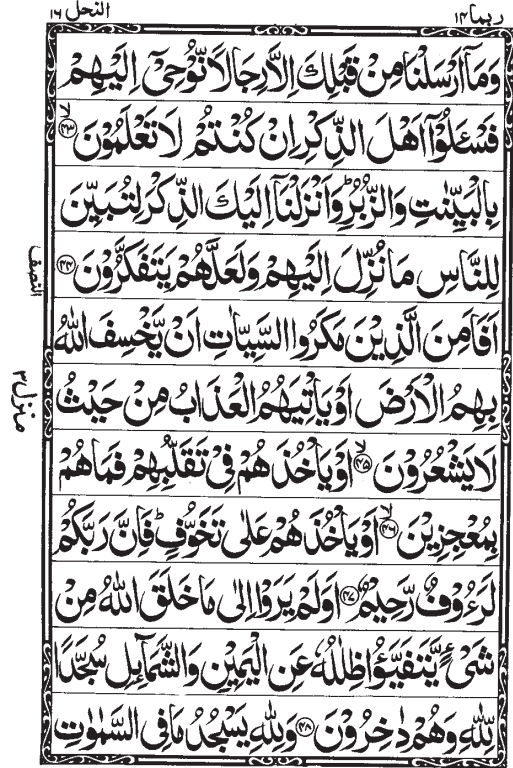 ربما ١٤
النحل ١٦
وَمَاۤ اَرْسَلْنَا مِنْ قَبْلِكَ اِلَّا رِجَالًا نُّوْحِیْۤ اِلَیْهِمْ
فَسْـَٔلُوْۤا اَهْلَ الذِّكْرِ اِنْ كُنْتُمْ لَا تَعْلَمُوْنَ ﴿۴۳﴾ۙ
بِالْبَیِّنٰتِ وَالزُّبُرِ ؕ وَاَنْزَلْنَاۤ اِلَیْكَ الذِّكْرَ لِتُبَیِّنَ
لِلنَّاسِ مَا نُزِّلَ اِلَیْهِمْ وَلَعَلَّهُمْ یَتَفَكَّرُوْنَ ﴿۴۴﴾
اَفَاَمِنَ الَّذِیْنَ مَكَرُوا السَّیِّاٰتِ اَنْ یَّخْسِفَ اللّٰهُ
بِهِمُ الْاَرْضَ اَوْ یَاْتِیَهُمُ الْعَذَابُ مِنْ حَیْثُ
لَا یَشْعُرُوْنَ ﴿۴۵﴾ۙ اَوْ یَاْخُذَهُمْ فِیْ تَقَلُّبِهِمْ فَمَا هُمْ
بِمُعْجِزِیْنَ ﴿۴۶﴾ۙ اَوْ یَاْخُذَهُمْ عَلٰی تَخَوُّفٍ ؕ فَاِنَّ رَبَّكُمْ
لَرَءُوْفٌ رَّحِیْمٌ ﴿۴۷﴾ اَوَلَمْ یَرَوْا اِلٰی مَا خَلَقَ اللّٰهُ مِنْ
شَیْءٍ یَّتَفَیَّؤُا ظِلٰلُهٗ عَنِ الْیَمِیْنِ وَالشَّمَآىِٕلِ سُجَّدًا
لِّلّٰهِ وَهُمْ دٰخِرُوْنَ ﴿۴۸﴾ وَلِلّٰهِ یَسْجُدُ مَا فِی السَّمٰوٰتِ
النصف
منزل ٣